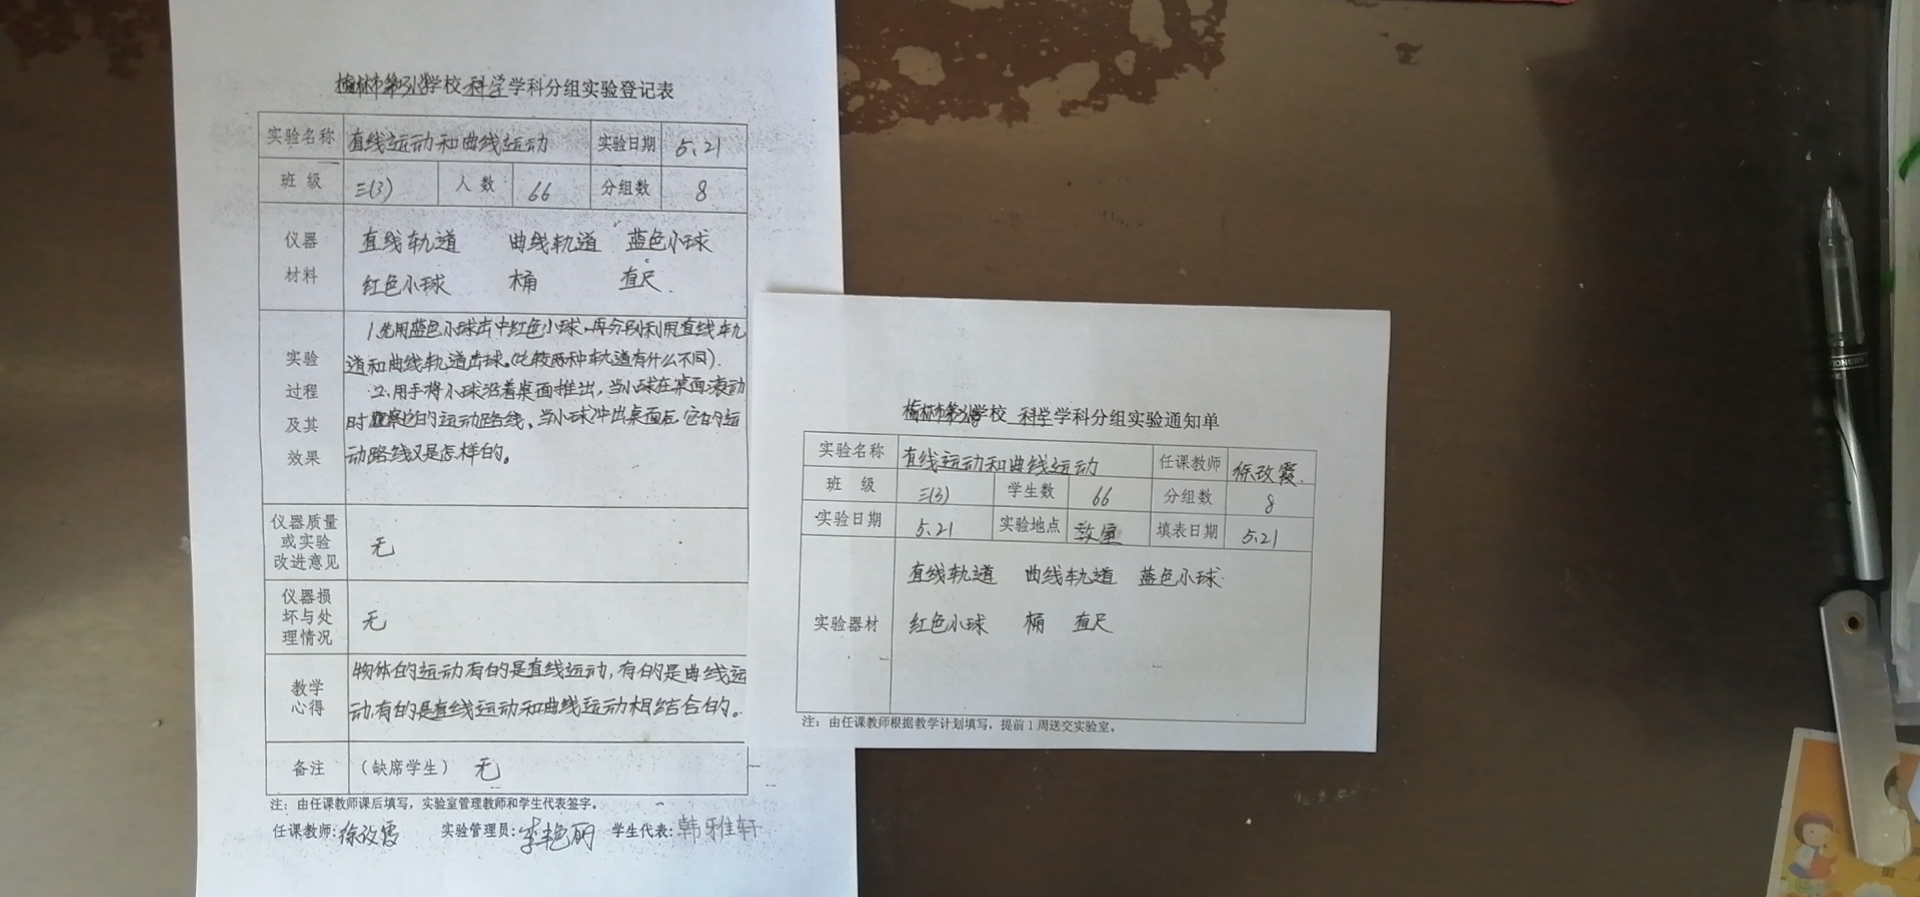 榆林市第 小学校 科学学科分组实验登记表
实验名称 直线运动和曲线运动 实验日期 5.21
班 级 三(3) 人 数 66 分组数 8
仪器 直线轨道 曲线轨道 蓝色小球
材料 红色小球 桶 直尺.
实验过程及其效果
1.先用蓝色小球击中红色小球,再分别利用直线轨
道和曲线轨道击球。(比较两种轨道有什么不同).
2.用手将小球沿着桌面推出,当小球在桌面滚动
时观察它的运动路线、当小球冲出桌面后,它的运
动路线又是怎样的。
仪器质量
或实验
改进意见 无
仪器损
坏与处
理情况 无
教学心得
物体的运动有的是直线运动,有的是曲线运
动,有的是直线运动和曲线运动相结合的。
备注 (缺席学生) 无
注:由任课教师课后填写,实验室管理教师和学生代表签字。
任课教师:徐改霞 实验管理员:李艳丽 学生代表:韩雅轩
榆林市第 小学校 科学学科分组实验通知单
实验名称 直线运动和曲线运动 任课教师 徐改霞.
班 级 三(3) 学生数 66 分组数 8
实验日期 5.21 实验地点 教室 填表日期 5.21
实验器材
直线轨道 曲线轨道 蓝色小球
红色小球 桶 直尺
注:由任课教师根据教学计划填写,提前1周送交实验室。